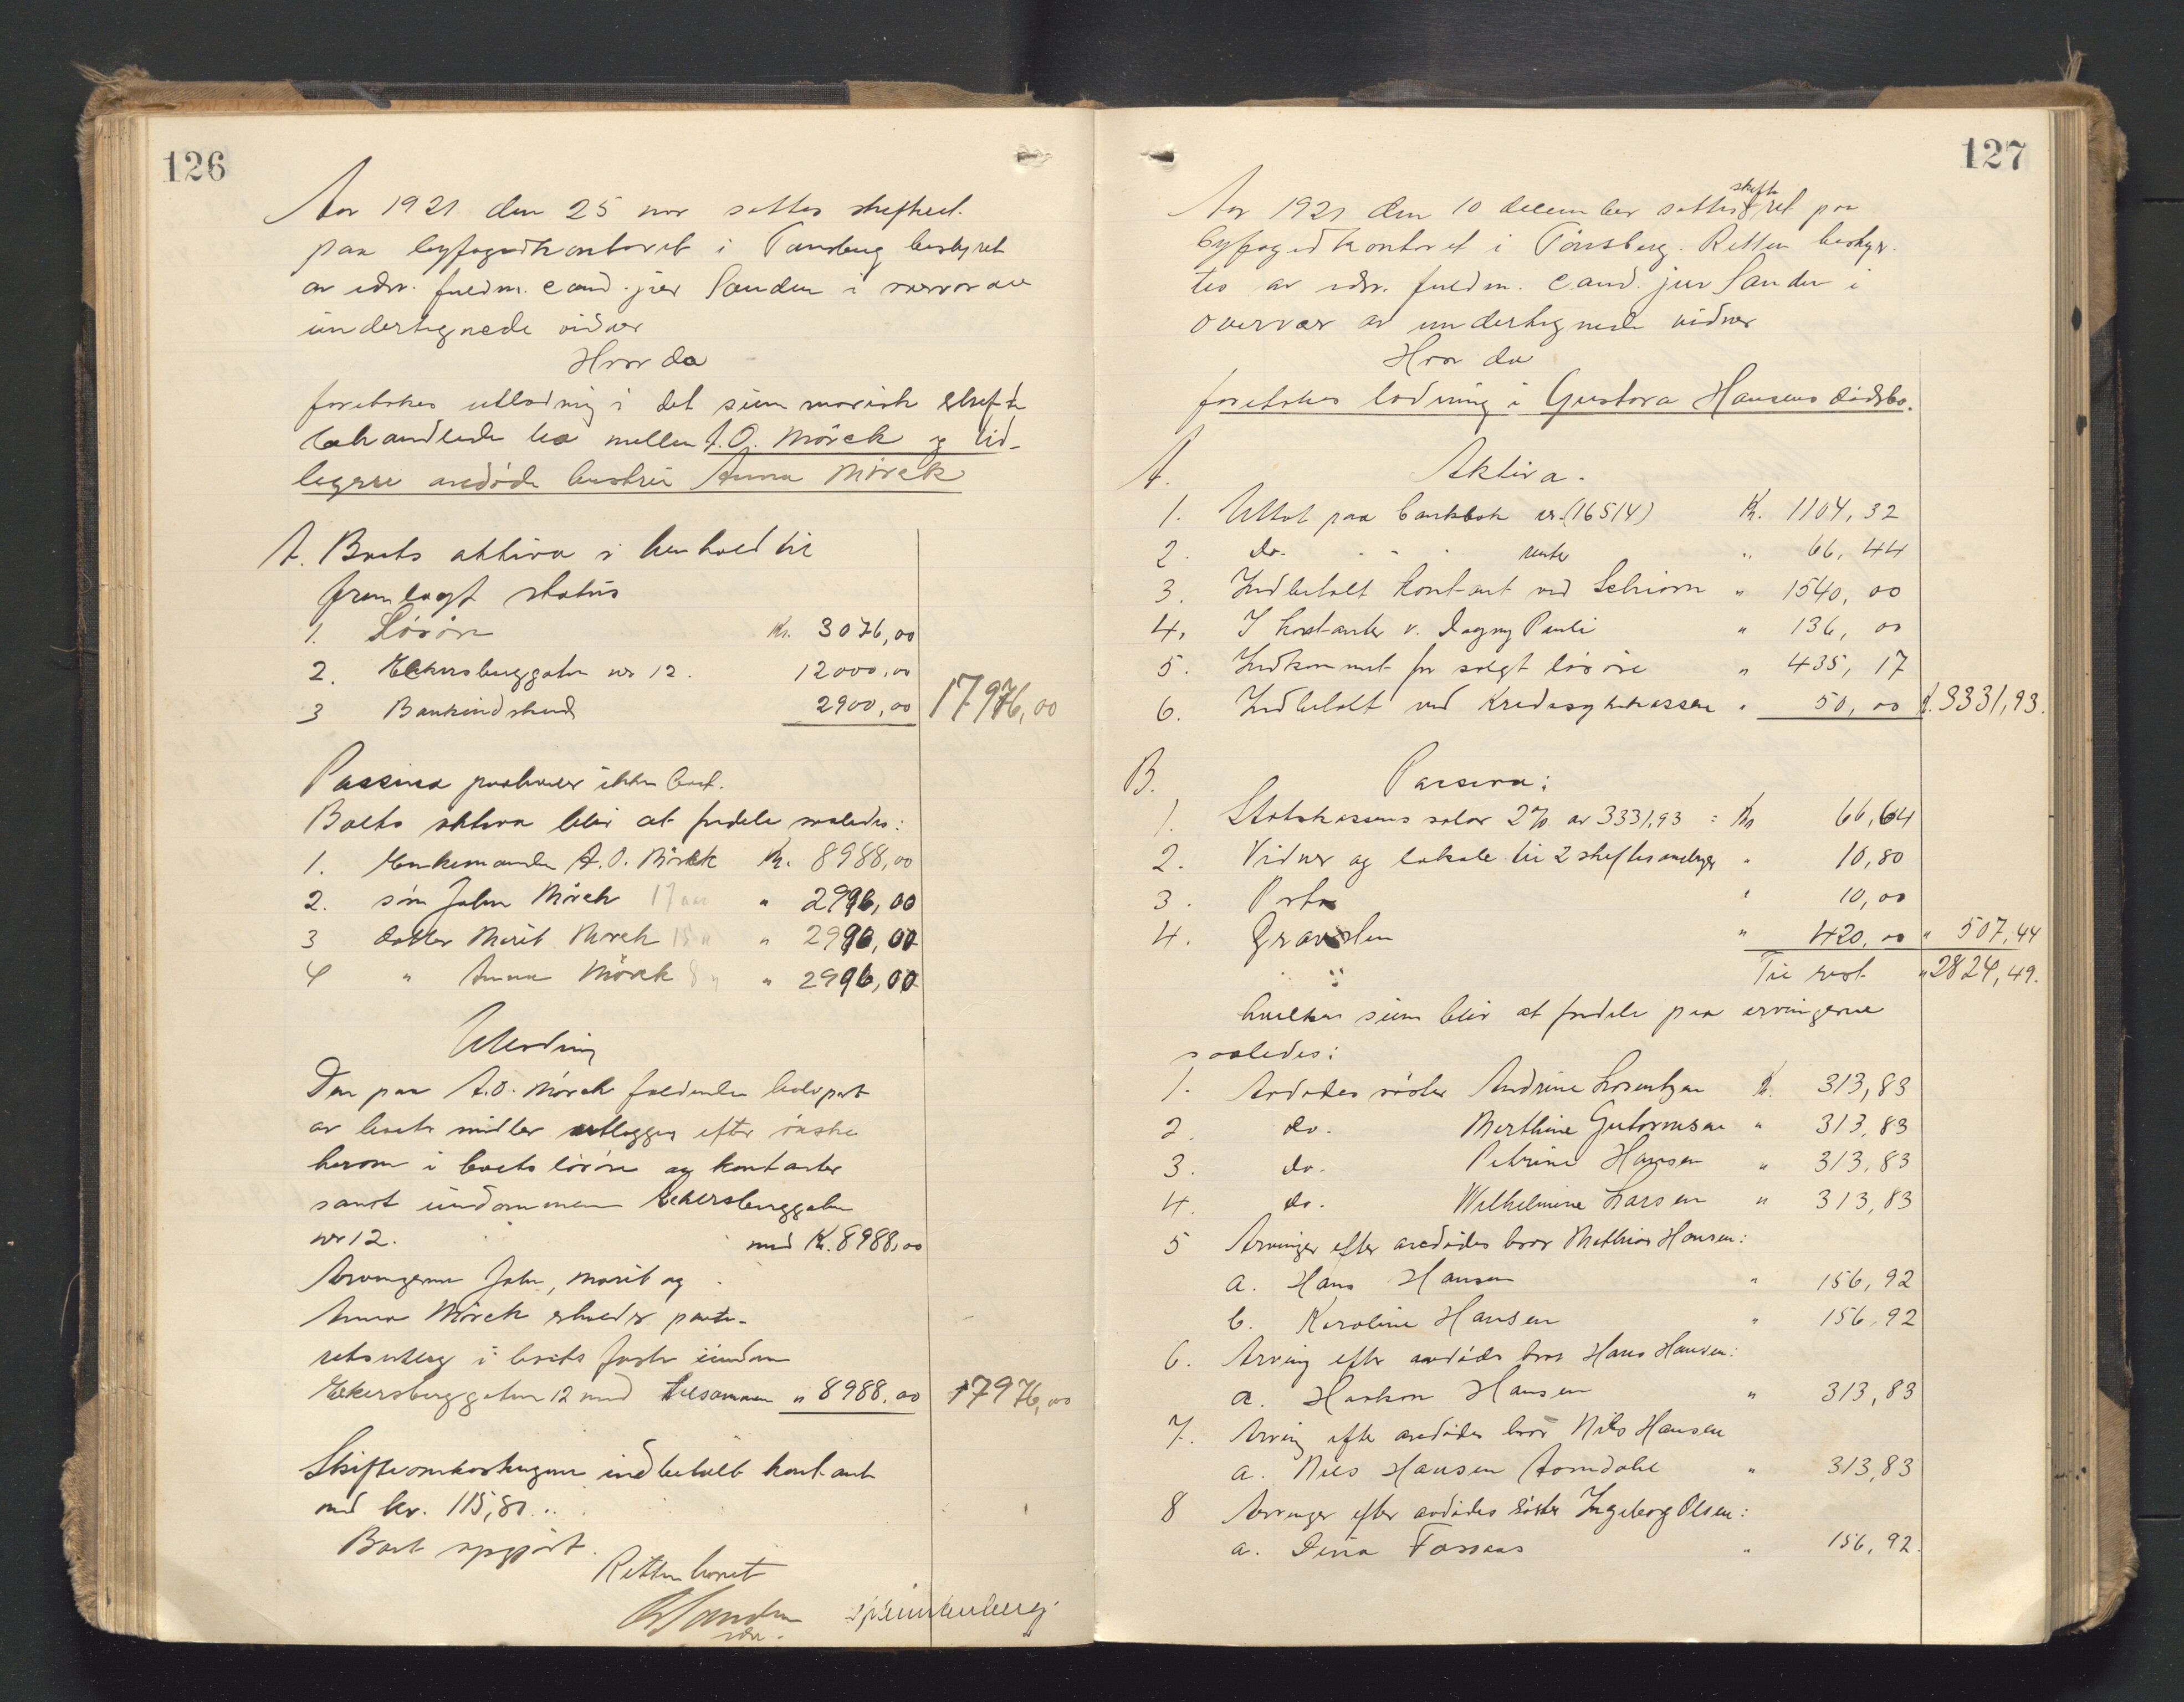 126
Aar 1921 den 25 nov sattes skifteret
paa byfogedkontoret i Tønsberg bestyret
av edsv. fuldm. cand. jur Sanden i overvær av
undertegnede vidner
Hvor da
foretokes utlodning i det summarisk skifte
behandlede bo mellem A.O. Mörck og tid-
ligere avdöde hustru Anna Mörck
A. Boets aktiva i henhold til
fremlagt status
1. Lösöre Kr. 3076,00
2. Ekersberggaten nr 12. 12000,00
3 Bankindskud 2900,00 17976,00
Passiva paahviler ikke boet.
Boets aktiva blir at fordele saaledes:
1. Enkemanden A.O. Mörck Kr. 8988,00
2. sön John Mörck 17 aar " 2996,00
3 datter Marit Mörck 15 " " 2996,00
4 " Anna Mörck 8 " " 2996,00
Utlodning
Den paa A.O. Mörck faldende halvpart
av boets midler utlægges efter önske
herom i boets lösöre og kontanter
samt eiendommen Ekersberggaten
nr 12. med Kr. 8988,00
Arvingerne John, Marit og
Anna Mörck erholder pante-
retsutlæg i boets faste eiendom
Ekersberggaten 12 med tilsammen " 8988,00 17976,00
Skifteomkostningerne indbetalt kontant
med kr. 115,80..
Boet opgjört.
Retten hævet
Sanden
edsv.
127
Aar 1921 den 10 december sattes skifteret paa
byfogedkontoret i Tönsberg. Retten bestyr-
tes av edsv. fuldm. cand. jur Sanden i
overvær av undertegnede vidner
Hvor da
foretokes lodning i Gustava Hansens dödsbo.
A. Aktiva.
1. Uttat paa bankbok nr. (16514) Kr. 1104,32
2. do. - - - rente " 66,44
3. Indbetalt kontant ved Schiorn " 1540,00
4. I kontanter v. Dagny Pauli " 136,00
5. Indkommet for solgt lösöre " 435,17
6. Indbetalt ved Kredssykekassen " 50,00 Kr. 3331,93.
B. Passiva:
1. Statskassens salær 2% av 3331,93 = Kr 66,64
2. Vidner og lokale til 2 skiftesamlinger " 10,80
3. Porto " 10,00
4. Gravölen " 420,00 " 507,44
Til rest " 2824,49.
hvilken sum blir at fordele paa arvingerne
saaledes:
1. Avdödes söster Andrine Lorentzen Kr. 313,83
2. do. Marthine Gutormsen " 313,83
3. do. Petrine Hansen " 313,83
4. do. Wilhelmine Larsen " 313,83
5 Arvinger efter avdödes bror Mathias Hansen:
a. Hans Hansen " 156,92
b. Karoline Hansen " 156,92
6. Arving efter avdödes bror Hans Hansen:
a. Haakon Hansen " 313,83
7. Arving efter avdödes bror Nils Hansen
a. Nils Hansen Aomdahl " 313,83
8 Arvinger efter avdödes söster Ingeborg Olsen:
a. Dina Fossaas " 156,92.